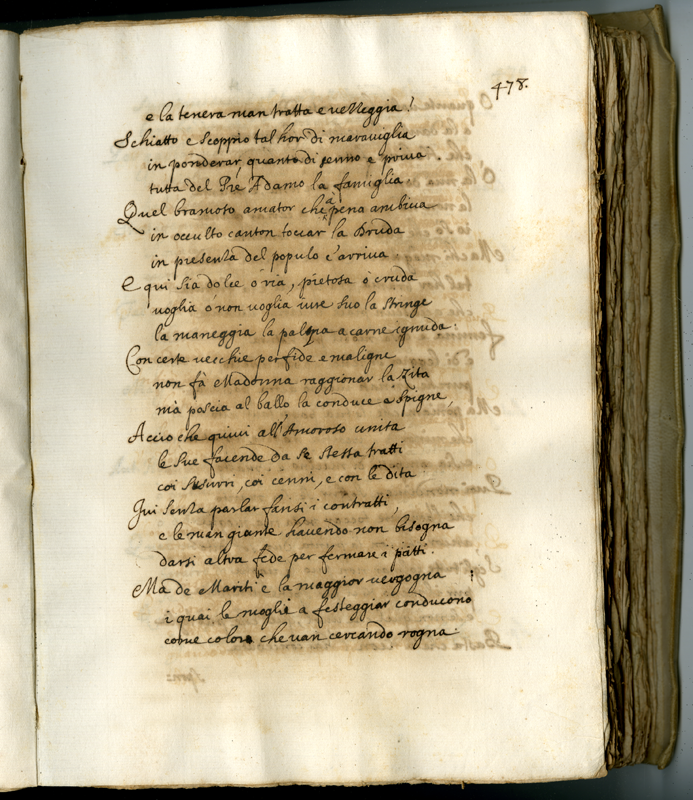 478.
e la tenera man tratta e velleggia!
Schiatto e scoppio tal hor di maraviglia
in ponderar, quanto di senno e priva
tutta del Pre Adamo la famiglia.
Quel bramoso amator che à pena ambiva
in occulto canton toccar la Druda
in presenza del populo c'arriva.
E qui sia dolce ò ria, pietosa ò cruda
voglia ò non voglia iure suo la stringe
la maneggia la palpa a carne ignuda.
Con certe vecchie perfide e maligne
non fà Madonna raggionar la Zita
mà poscia al ballo la conduce e spigne,
Acciò che quivi all'Amoroso unita
le sue facende da se stessa tratti
coi susurri, coi cenni, e con le dita
Ivi senza parlar fansi i contratti,
e le man giante havendo non bisogna
darsi altra fede per fermare i patti.
Ma de Mariti è la maggior vergogna
i quai le moglie a festeggiar conducono
come color che van cercando rogna.